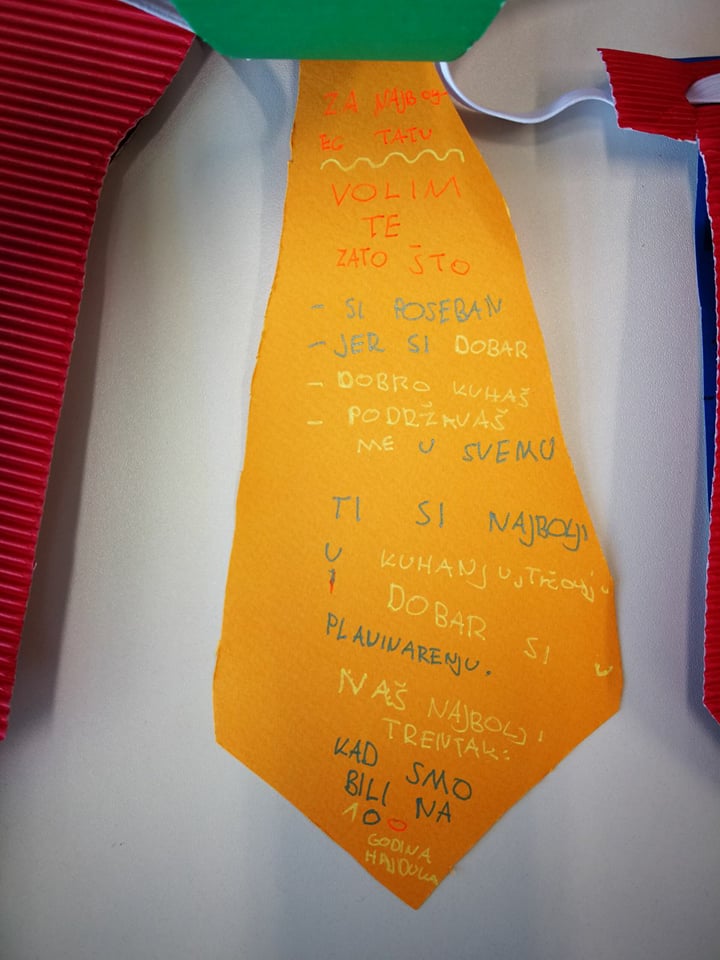 ZA NAJBOJ-
EG TATU
VOLIM
TE
ZATO ŠTO
- SI POSEBAN
- JER SI DOBAR
- DOBRO KUHAŠ
- PODRŽAVAŠ
ME U SVEMU
TI SI NAJBOLJI
U KUHANJU, TRČANJU
I DOBAR SI U
PLANINARENJU.
NAŠ NAJBOLJI
TRENTAK:
KAD SMO
BILI NA
100
GODINA
HAJDUKA